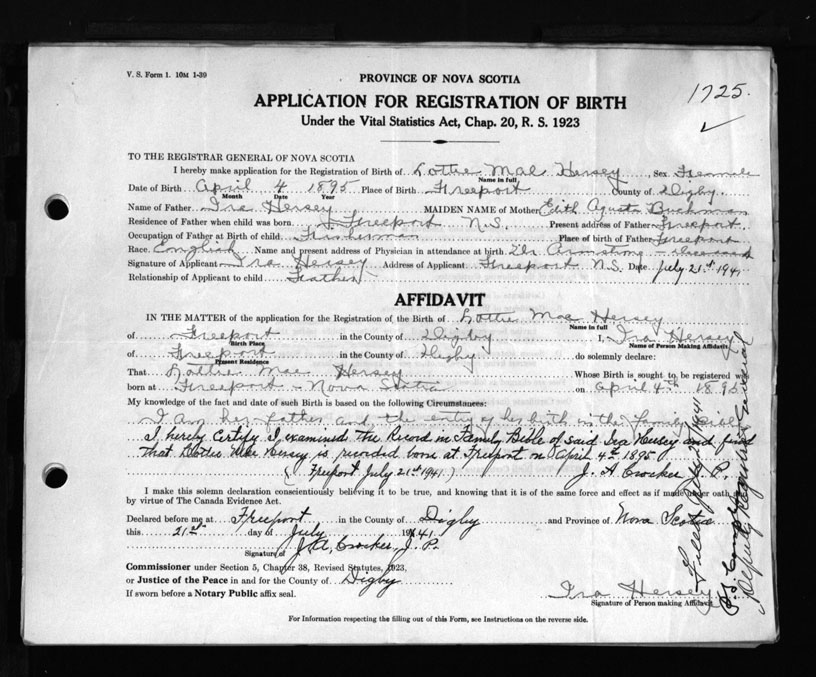 V. S. Form 1. 10M 1-39
PROVINCE OF NOVA SCOTIA
1725.
APPLICATION FOR REGISTRATION OF BIRTH
Under the Vital Statistics Act, Chap. 20, R. S. 1923
TO THE REGISTRAR GENERAL OF NOVA SCOTIA
I hereby make application for the Registration of Birth of Lottie Mae Hersey, Sex Female
Name in full
Date of Birth April 4 1895 Place of Birth Freeport County of Digby
Month Date Year
Name of Father Ira Hersey MAIDEN NAME of Mother Edith Agusta
Residence of Father when child was born Freeport N.S. Present address of Father Freeport.
Occupation of Father at Birth of child Fisherman Place of birth of Father Freeport
Race. English Name and present address of Physician in attendance at birth Dr Armstrong - deceased
Signature of Applicant Ira Hersey Address of Applicant Freeport N.S. Date July 21st 1941
Relationship of Applicant to child Father
AFFIDAVIT
IN THE MATTER of the application for the Registration of the Birth of Lottie Mae Hersey
Name in full
of Freeport in the County of Digby I, Ira Hersey
Birth Place Name of Person Making Affidavit
of Freeport in the County of Digby do solemnly declare:
Present Residence
That Lottie Mae Hersey Whose Birth is sought to be registered was
born at Freeport - Nova Scotia on April 4th 1895
My knowledge of the fact and date of such Birth is based on the following Circumstances:
I am her father and the entry of her birth is in the family Bible
I hereby Certify I examined the Record in Family Bible of said Ira Hersey and find
that Lottie Mae Hersey is recorded born at Freeport on April 4th 1895
(Freeport July 21st 1941.) J. A Crocker J. P.
I make this solemn declaration conscientiously believing it to be true, and knowing that it is of the same force and effect as if made under oath and
by virtue of The Canada Evidence Act.
Declared before me at Freeport in the County of Digby and Province of Nova Scotia
this 21st day of July 1941
Signature of J. A. Crocker, J. P.
Commissioner under Section 5, Chapter 38, Revised Statutes, 1923,
or Justice of the Peace in and for the County of Digby
If sworn before a Notary Public affix seal.
Ira Hersey
Signature of Person making Affidavit
For Information respecting the filling out of this Form, see Instructions on the reverse side.
Filed July 1941
Deputy Registrar General